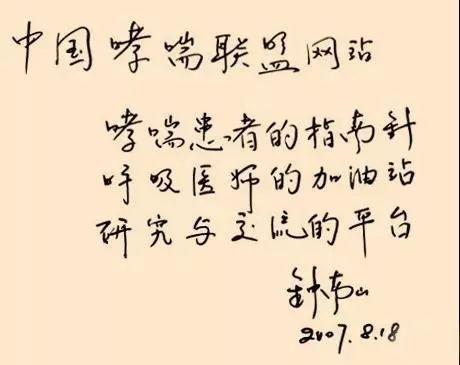 中国哮喘联盟网站
哮喘患者的指南针
呼吸医师的加油站
研究与交流的平台
钟南山
2007.8.18